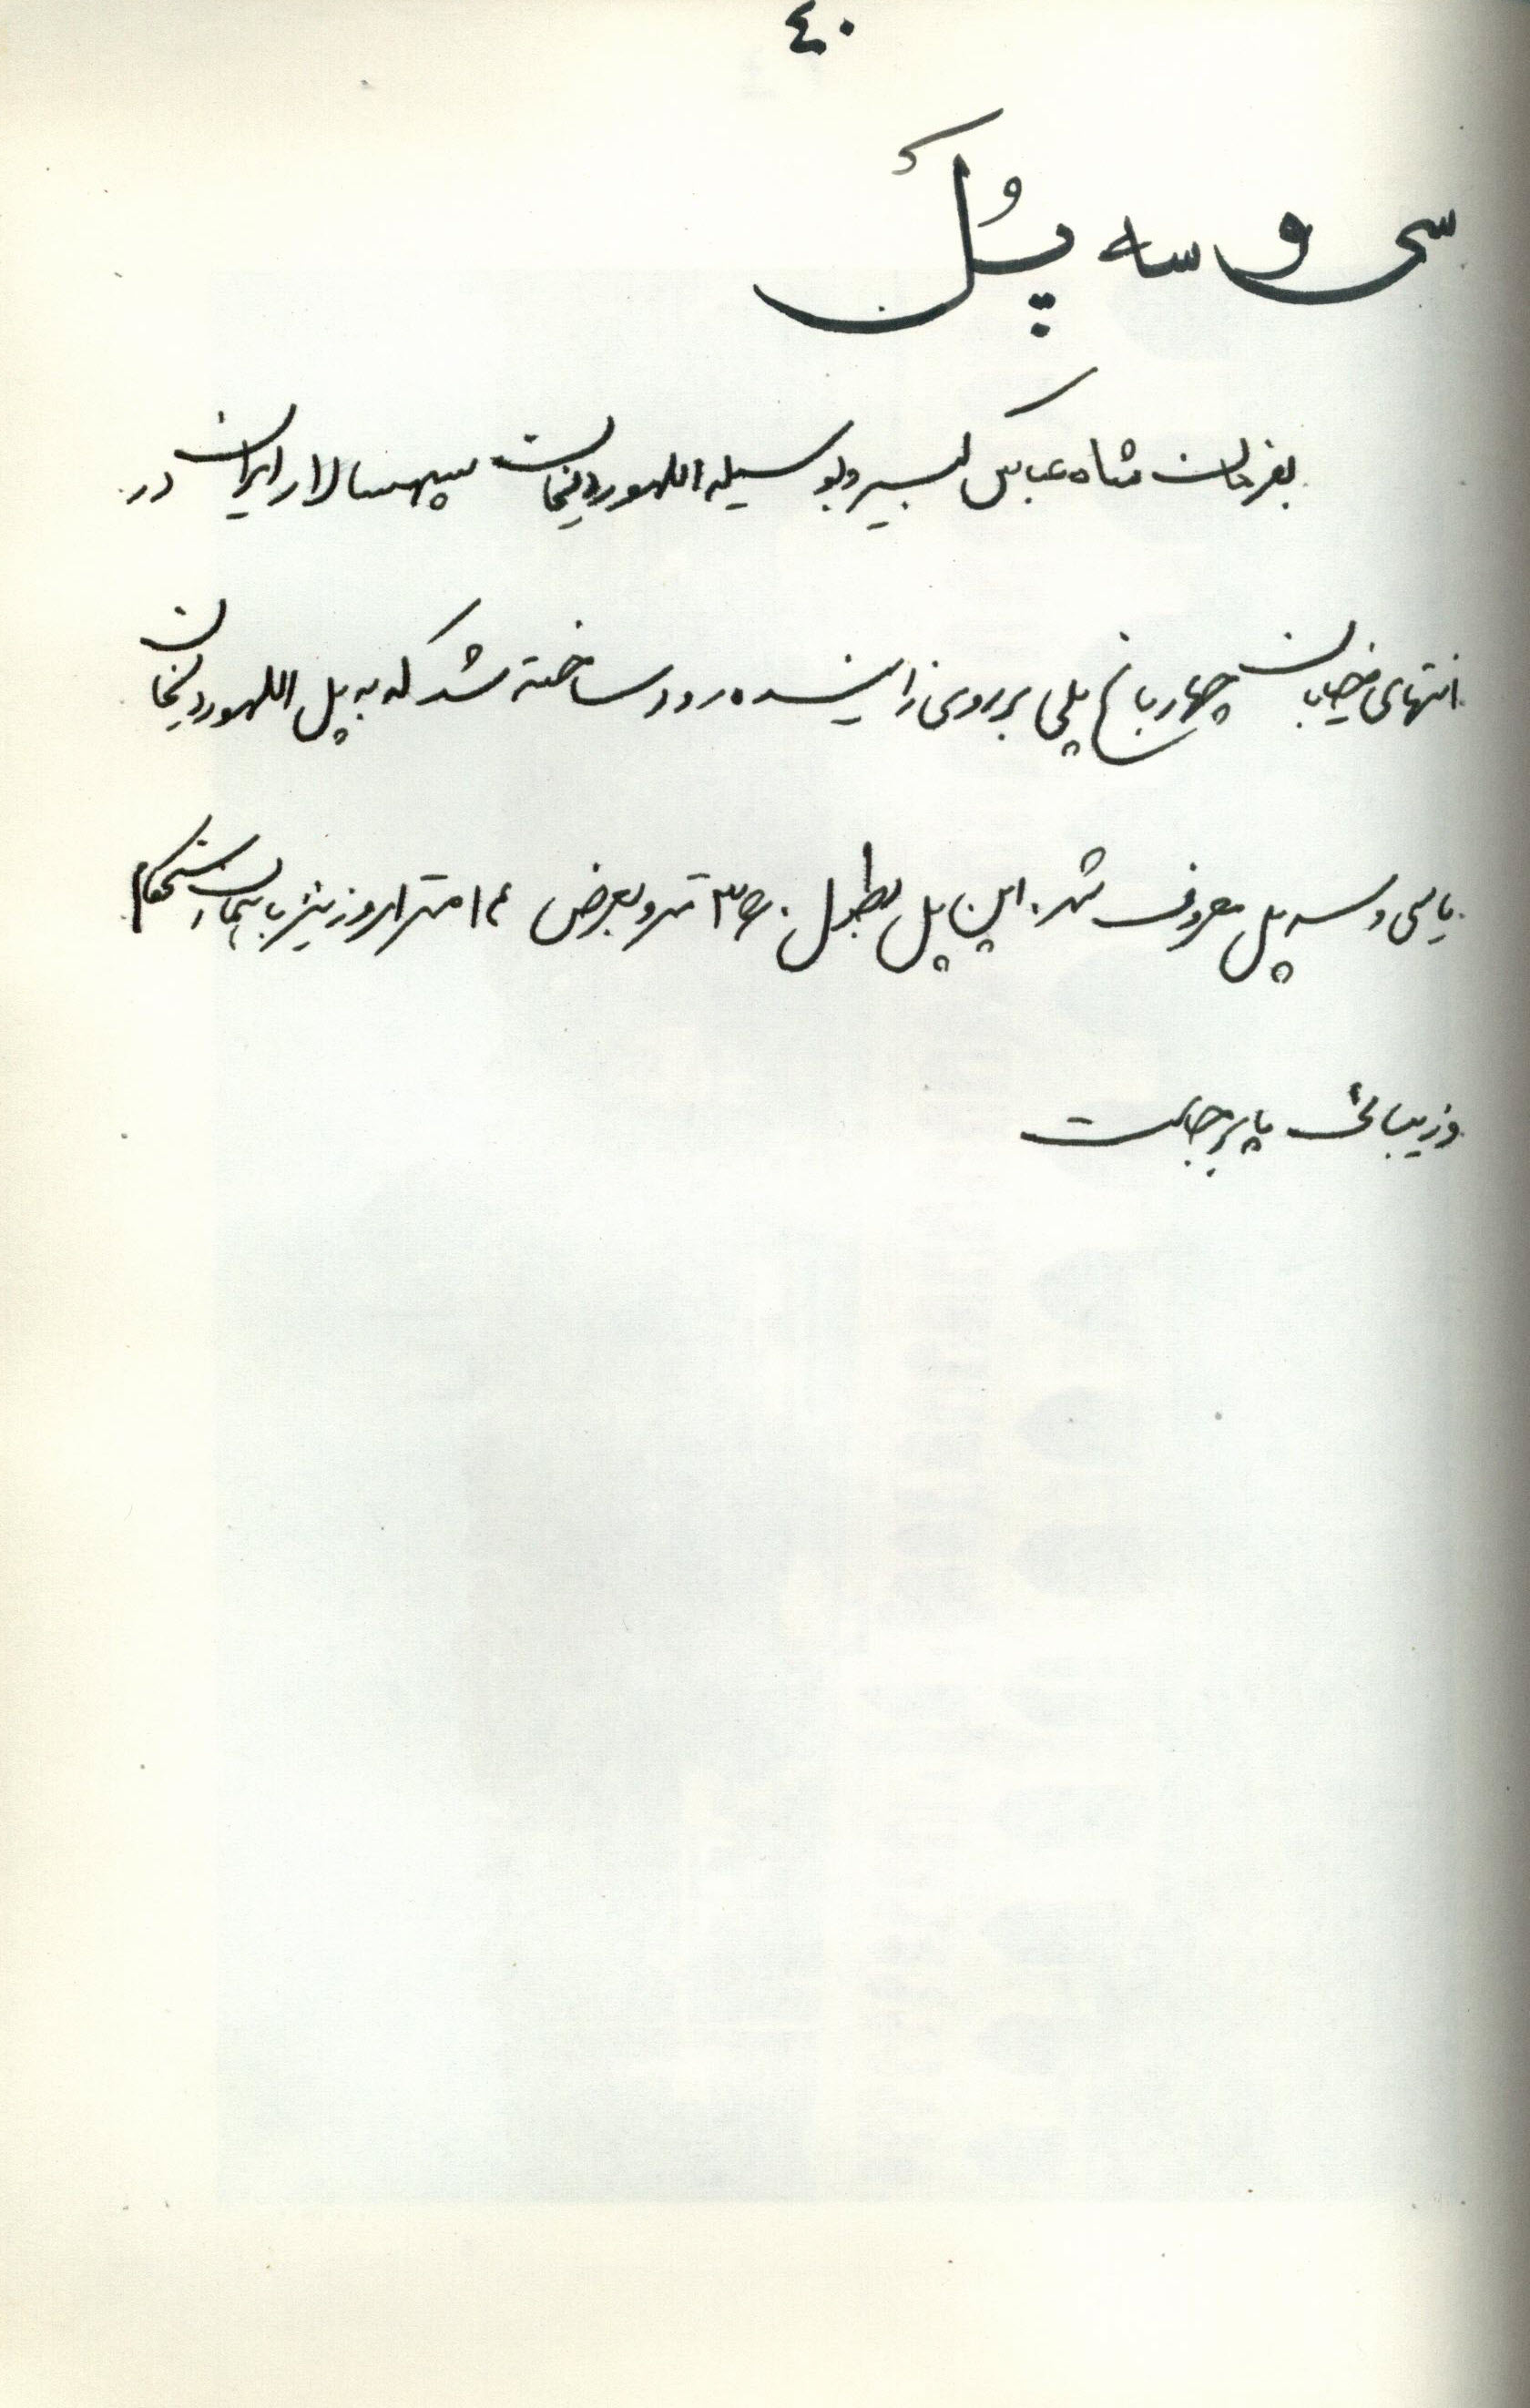 ٤٠
سی و سه پُل
بفرمان شاه عباس کبیر و بوسیله اللهوردیخان سپهسالار ایران در
انتهای خیابان چهارباغ پلی بر روی زاینده رود ساخته شد که به پل اللهوردیخان
یا سی و سه پل معروف شد. این پل بطول ۳۶۰ متر و بعرض ۱۴ متر امروز نیز با همان استحکام
و زیبائی پا برجاست